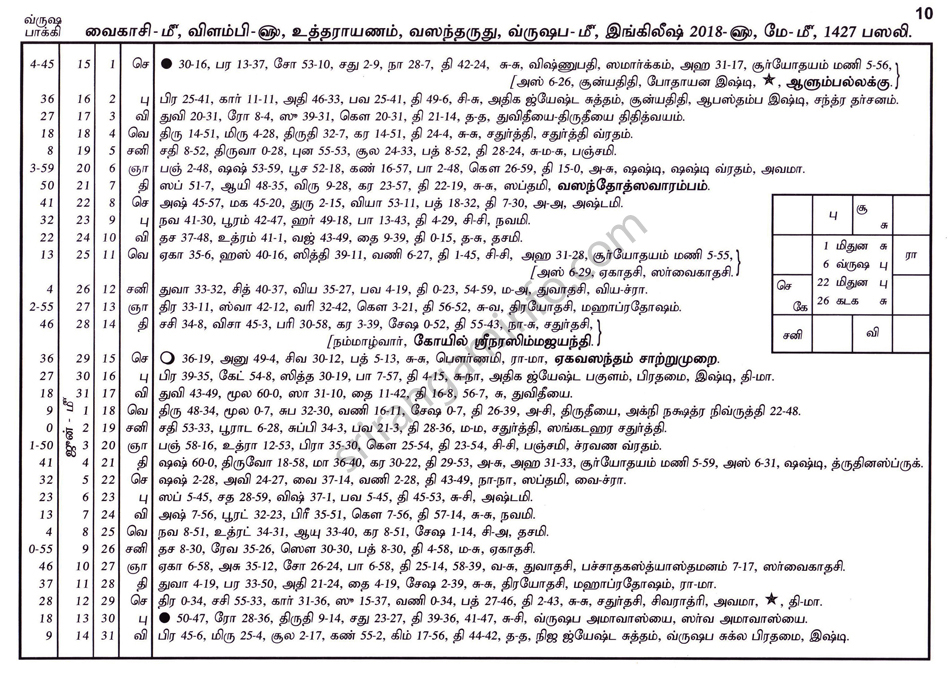 10
வ்ருஷ
பாக்கி
வைகாசி-மீ, விளம்பி-ஸ்ரீ, உத்தராயணம், வஸந்தருது, வ்ருஷப-மீ, இங்கிலீஷ் 2018-ஸ்ரீ, மே-மீ, 1427 பஸலி.
4-45 15 1 செ ● 30-16, பர 13-37, சோ 53-10, சது 2-9, நா 28-7, தி 42-24, சு-சு, விஷ்ணுபதி, ஸமார்க்கம், அஹ 31-17, சூர்யோதயம் மணி 5-56,
[அஸ் 6-26, சூன்யதிதி, போதாயன இஷ்டி, ★, ஆளும்பல்லக்கு.
36 16 2 பு பிர 25-41, கார் 11-11, அதி 46-33, பவ 25-41, தி 49-6, சி-சு, அதிக ஜ்யேஷ்ட சுத்தம், சூன்யதிதி, ஆபஸ்தம்ப இஷ்டி, சந்த்ர தர்சனம்.
27 17 3 வி துவி 20-31, ரோ 8-4, ஸு 39-31, கௌ 20-31, தி 21-14, த-த, துவிதீயை-திருதீயை திதித்வயம்.
18 18 4 வெ திரு 14-51, மிரு 4-28, திருதி 32-7, கர 14-51, தி 24-4, சு-சு, சதுர்த்தி, சதுர்த்தி வ்ரதம்.
8 19 5 சனி சதி 8-52, திருவா 0-28, புன 55-53, சூல 24-33, பத் 8-52, தி 28-24, சு-ம-சு, பஞ்சமி.
3-59 20 6 ஞா பஞ் 2-48, ஷஷ் 53-59, பூச 52-18, கண் 16-57, பா 2-48, கௌ 26-59, தி 15-0, அ-சு, ஷஷ்டி, ஷஷ்டி வ்ரதம், அவமா.
50 21 7 தி ஸப் 51-7, ஆயி 48-35, விரு 9-28, கர 23-57, தி 22-19, சு-சு, ஸப்தமி, வஸந்தோத்ஸவாரம்பம்.
41 22 8 செ அஷ் 45-57, மக 45-20, துரு 2-15, வியா 53-11, பத் 18-32, தி 7-30, அ-அ, அஷ்டமி.
32 23 9 பு நவ 41-30, பூரம் 42-47, ஹர் 49-18, பா 13-43, தி 4-29, சி-சி, நவமி.
22 24 10 வி தச 37-48, உத்ரம் 41-1, வஜ் 43-49, தை 9-39, தி 0-15, த-சு, தசமி.
13 25 11 வெ ஏகா 35-6, ஹஸ் 40-16, ஸித்தி 39-11, வணி 6-27, தி 1-45, சி-சி, அஹ 31-28, சூர்யோதயம் மணி 5-55,
[அஸ் 6-29, ஏகாதசி, ஸர்வைகாதசி.
4 26 12 சனி துவா 33-32, சித் 40-37, விய 35-27, பவ 4-19, தி 0-23, 54-59, ம-அ, துவாதசி, விய-ச்ரா.
2-55 27 13 ஞா திர 33-11, ஸ்வா 42-12, வரி 32-42, கௌ 3-21, தி 56-52, சு-வ, திரயோதசி, மஹாப்ரதோஷம்.
46 28 14 தி சசி 34-8, விசா 45-3, பரி 30-58, கர 3-39, சேஷ 0-52, தி 55-43, நா-சு, சதுர்தசி,
[நம்மாழ்வார், கோயில் ஸ்ரீநரஸிம்மஜயந்தி.
36 29 15 செ ○ 36-19, அனு 49-4, சிவ 30-12, பத் 5-13, சு-சு, பௌர்ணமி, ரா-மா, ஏகவஸந்தம் சாற்றுமுறை.
27 30 16 பு பிர 39-35, கேட் 54-8, ஸித்த 30-19, பா 7-57, தி 4-15, சு-நா, அதிக ஜ்யேஷ்ட பகுளம், பிரதமை, இஷ்டி, தி-மா.
18 31 17 வி துவி 43-49, மூல 60-0, ஸா 31-10, தை 11-42, தி 16-8, 56-7, சு, துவிதீயை.
ஜூன்-மீ
9 1 18 வெ திரு 48-34, மூல 0-7, சுப 32-30, வணி 16-11, சேஷ 0-7, தி 26-39, அ-சி, திருதீயை, அக்நி நக்ஷத்ர நிவ்ருத்தி 22-48.
0 2 19 சனி சதி 53-33, பூராட 6-28, சுப்பி 34-3, பவ 21-3, தி 28-36, ம-ம, சதுர்த்தி, ஸங்கடஹர சதுர்த்தி.
1-50 3 20 ஞா பஞ் 58-16, உத்ரா 12-53, பிரா 35-30, கௌ 25-54, தி 23-54, சி-சி, பஞ்சமி, ச்ரவண வ்ரதம்.
41 4 21 தி ஷஷ் 60-0, திருவோ 18-58, மா 36-40, கர 30-22, தி 29-53, அ-சு, அஹ 31-33, சூர்யோதயம் மணி 5-59, அஸ் 6-31, ஷஷ்டி, த்ருதினஸ்ப்ருக்.
32 5 22 செ ஷஷ் 2-28, அவி 24-27, வை 37-14, வணி 2-28, தி 43-49, நா-நா, ஸப்தமி, வை-ச்ரா.
23 6 23 பு ஸப் 5-45, சத 28-59, விஷ் 37-1, பவ 5-45, தி 45-53, சு-சி, அஷ்டமி.
13 7 24 வி அஷ் 7-56, பூரட் 32-23, பிரீ 35-51, கௌ 7-56, தி 57-14, சு-சு, நவமி.
4 8 25 வெ நவ 8-51, உத்ரட் 34-31, ஆயு 33-40, கர 8-51, சேஷ 1-14, சி-அ, தசமி.
0-55 9 26 சனி தச 8-30, ரேவ 35-26, ஸௌ 30-30, பத் 8-30, தி 4-58, ம-சு, ஏகாதசி.
46 10 27 ஞா ஏகா 6-58, அசு 35-12, சோ 26-24, பா 6-58, தி 25-14, 58-39, வ-சு, துவாதசி, பச்சாதகஸ்த்யாஸ்தமனம் 7-17, ஸர்வைகாதசி.
37 11 28 தி துவா 4-19, பர 33-50, அதி 21-24, தை 4-19, சேஷ 2-39, சு-சு, திரயோதசி, மஹாப்ரதோஷம், ரா-மா.
28 12 29 செ திர 0-34, சசி 55-33, கார் 31-36, ஸு 15-37, வணி 0-34, பத் 27-46, தி 2-43, சு-சு, சதுர்தசி, சிவராத்ரி, அவமா, ★, தி-மா.
18 13 30 பு ● 50-47, ரோ 28-36, திருதி 9-14, சது 23-27, தி 39-36, 41-47, சு-சி, வ்ருஷப அமாவாஸ்யை, ஸர்வ அமாவாஸ்யை.
9 14 31 வி பிர 45-6, மிரு 25-4, சூல 2-17, கண் 55-2, கிம் 17-56, தி 44-42, த-த, நிஜ ஜ்யேஷ்ட சுத்தம், வ்ருஷப சுக்ல பிரதமை, இஷ்டி.
பு சூ சு
1 மிதுன சு
6 வ்ருஷ பு ரா
செ 22 மிதுன பு
கே 26 கடக சு
சனி வி
srirangaminfo.com